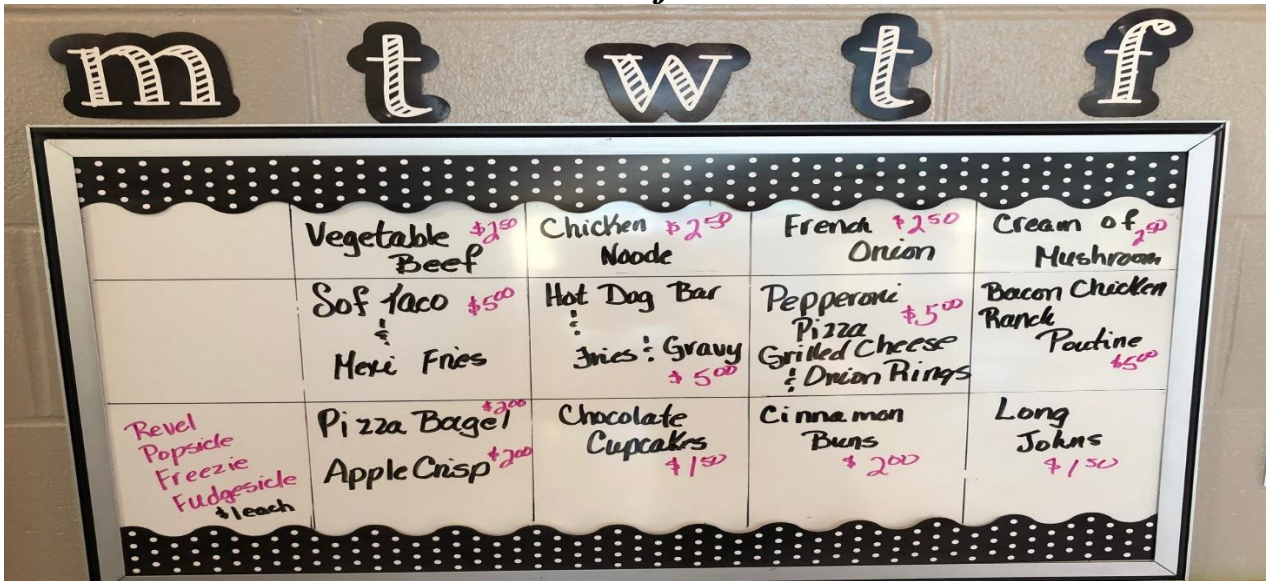 m t w t f
Vegetable $2.50
Beef
Chicken $2.50
Noode
French $2.50
Onion
Cream of 2.50
Mushroom
Sof Taco $5.00
&
Mexi Fries
Hot Dog Bar
&
Fries & Gravy
$5.00
Pepperoni
Pizza $5.00
Grilled Cheese
& Onion Rings
Bacon Chicken
Ranch
Poutine
$5.00
Revel
Popsicle
Freezie
Fudgesicle
$1 each
Pizza Bagel $2.00
Apple Crisp $2.00
Chocolate
Cupcakes
$1.50
Cinnamon
Buns
$2.00
Long
Johns
$1.50